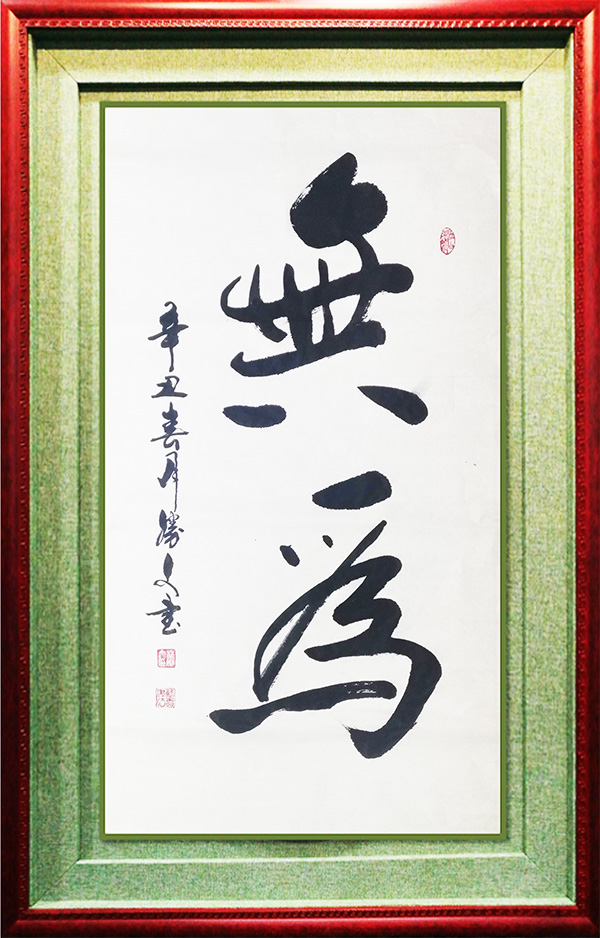 無為
辛丑春月勝文書